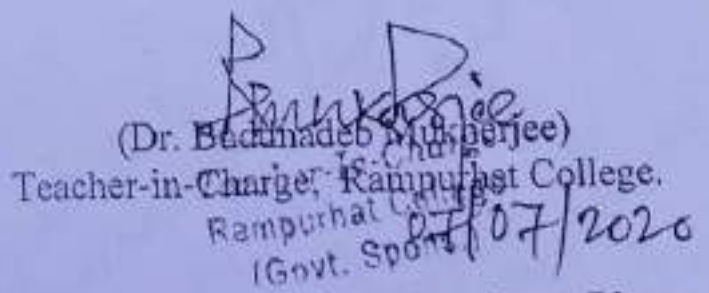 (Dr. Buddhadeb Mukherjee)
Teacher-in-Charge, Rampurhat College.
Teacher-in-Charge
Rampurhat College
07/07/2020
(Govt. Spons